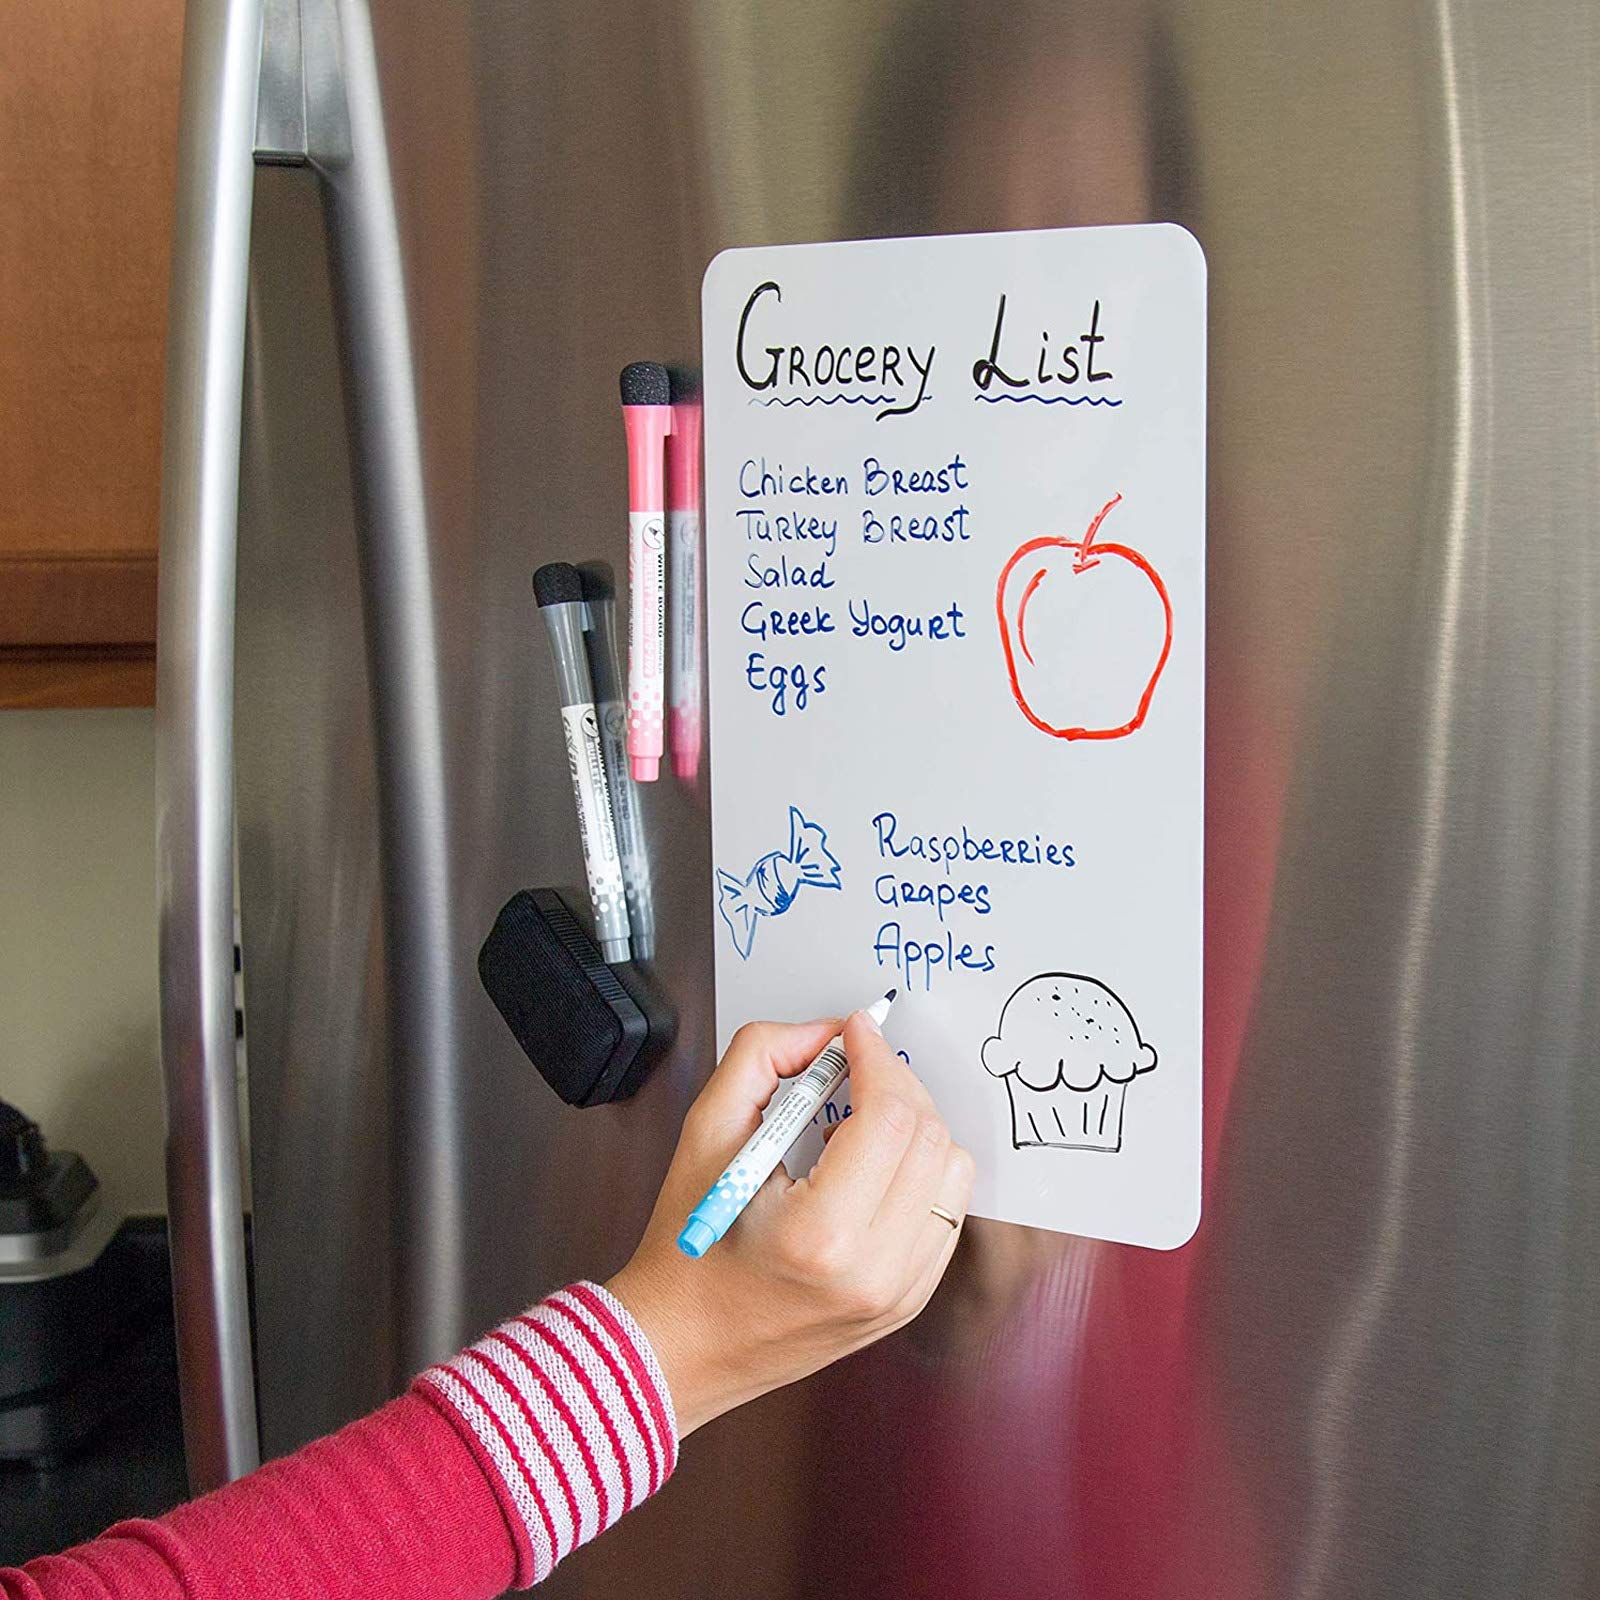 Grocery List
Chicken Breast
Turkey Breast
Salad
Greek Yogurt
Eggs
Raspberries
Grapes
Apples
WHITE BOARD